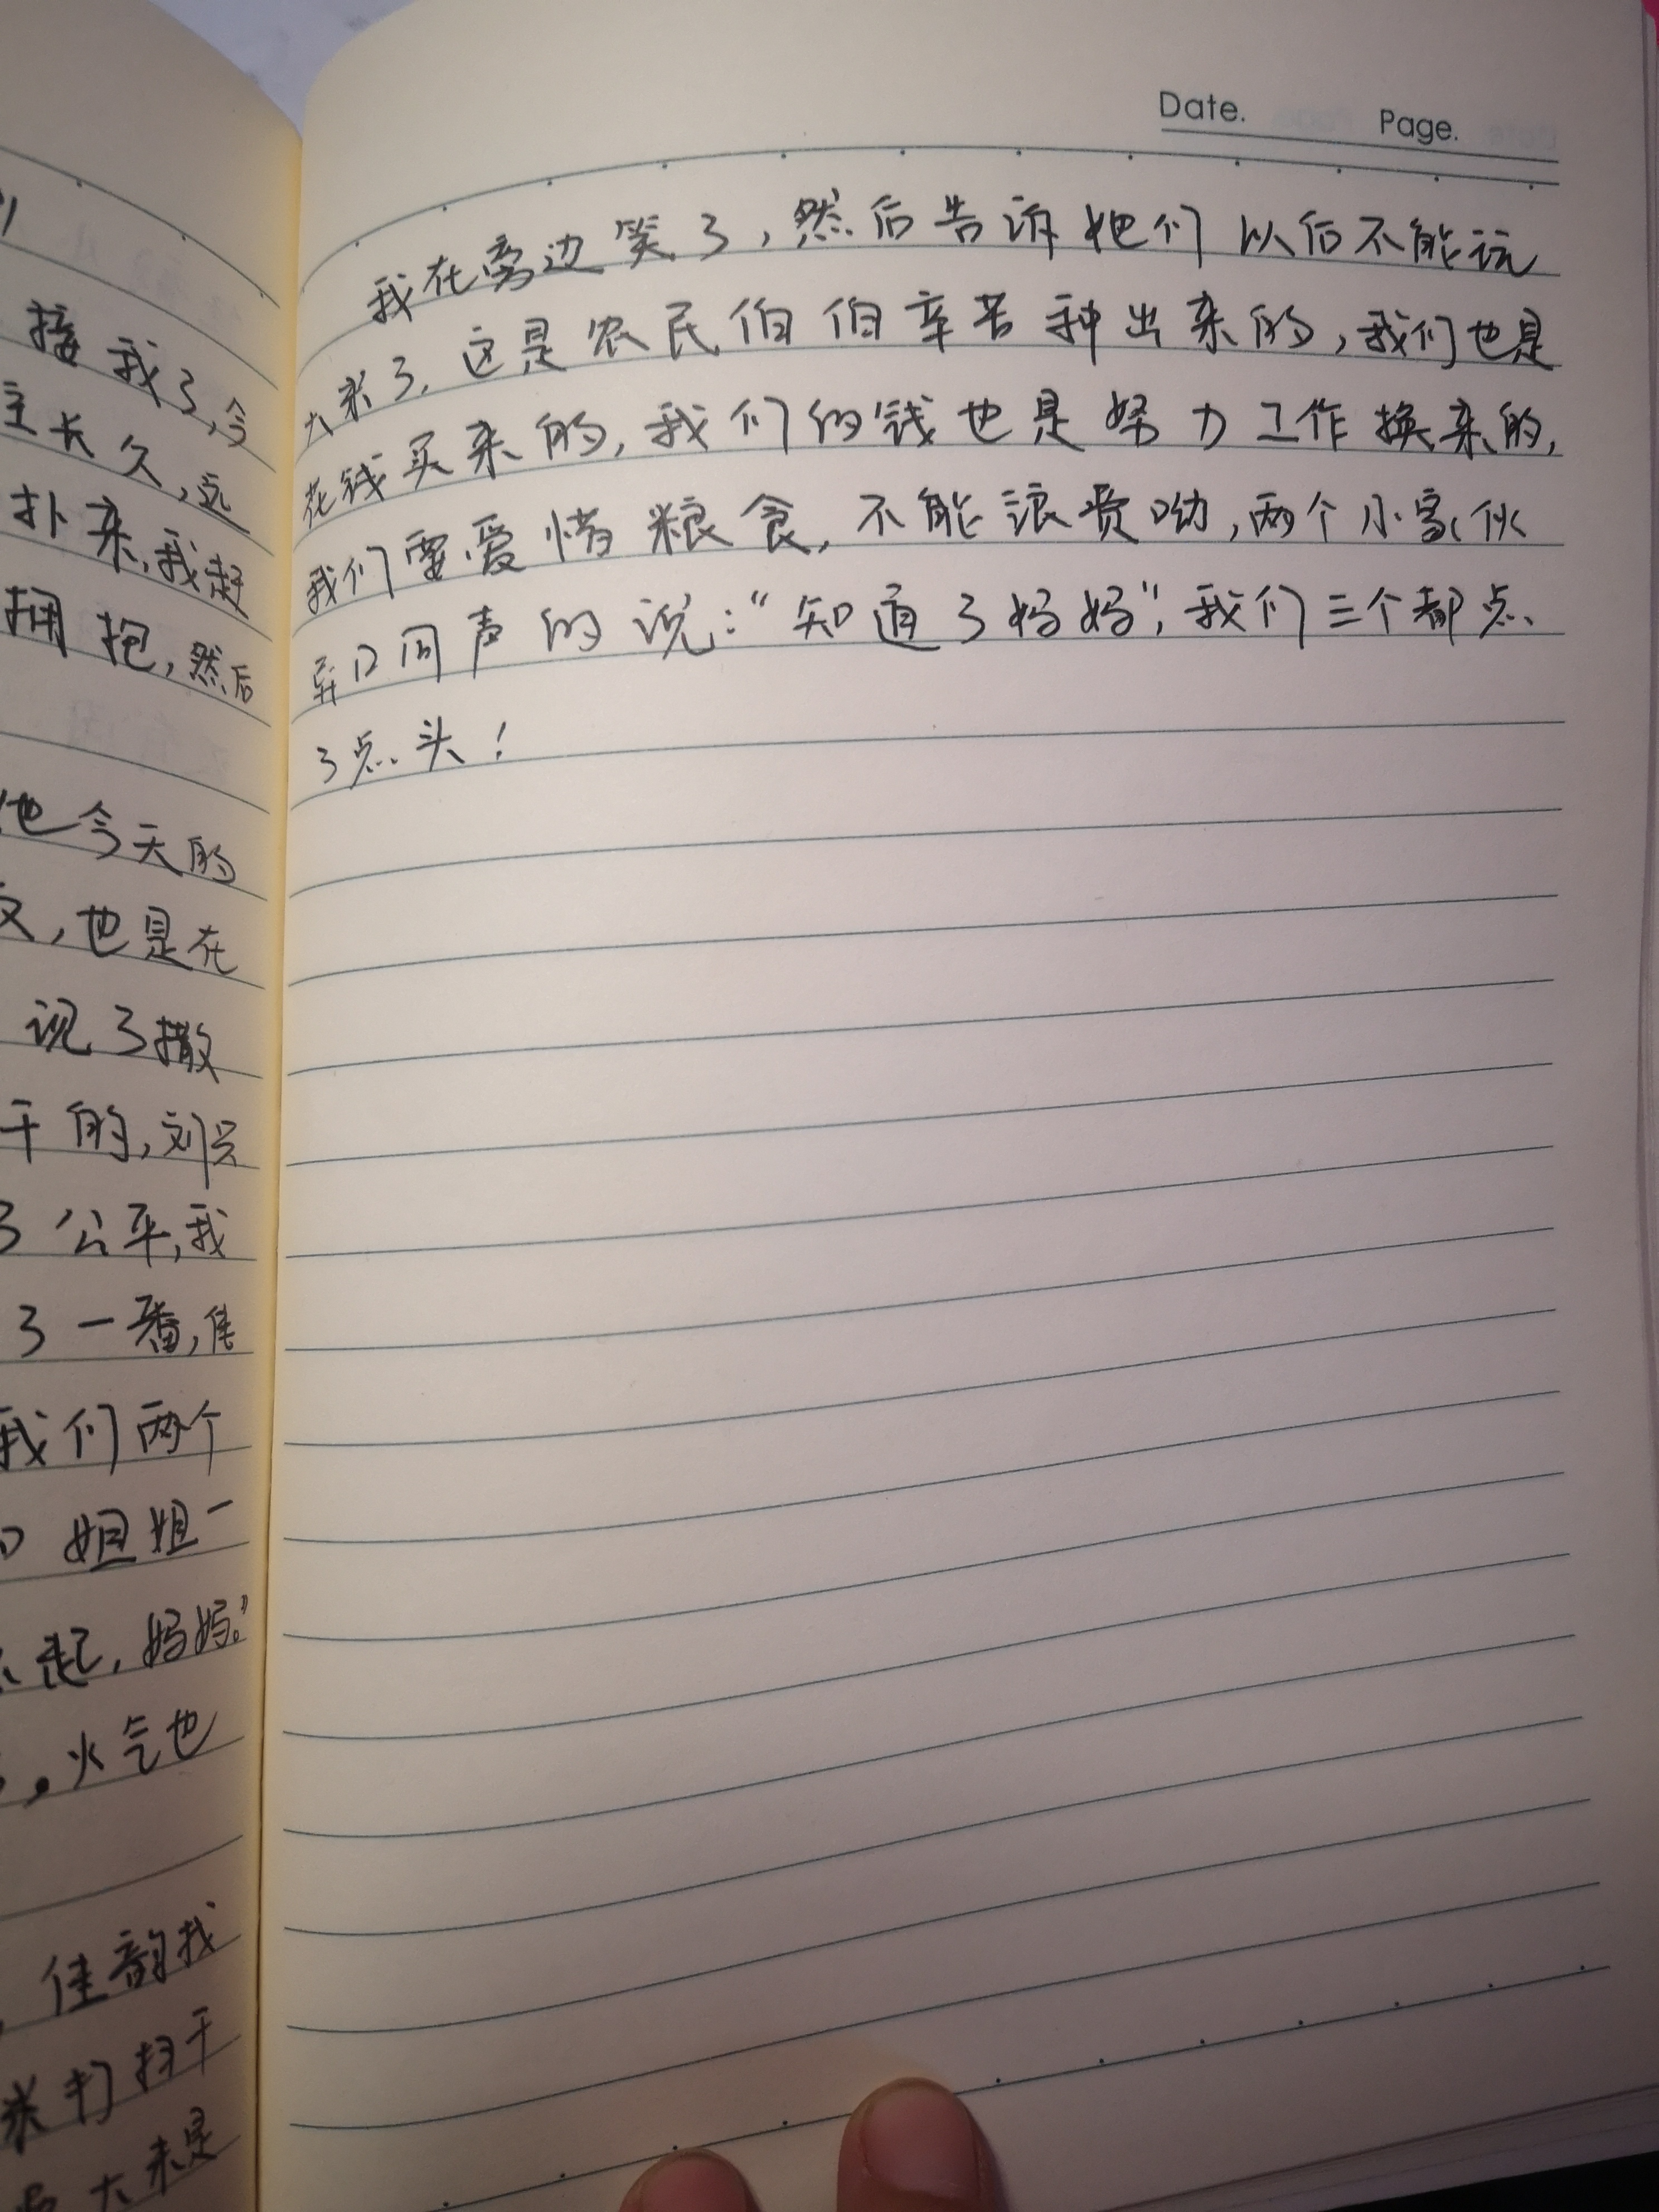 接我了,今
主长久,远
扑来,我赶
拥抱,然后
他今天的
文,也是在
说了撒
干的,刘兴
了公平,我
了一番,佳
我们两个
姐姐一
起,妈妈。"
火气也
佳韵我
来打扫干
大米是
Date. Page.
我在旁边笑了,然后告诉她们以后不能玩
大米了,这是农民伯伯辛苦种出来的,我们也是
花钱买来的,我们的钱也是努力工作换来的,
我们要爱惜粮食,不能浪费呦,两个小家伙
异口同声的说:"知道了妈妈",我们三个都点
了点头!